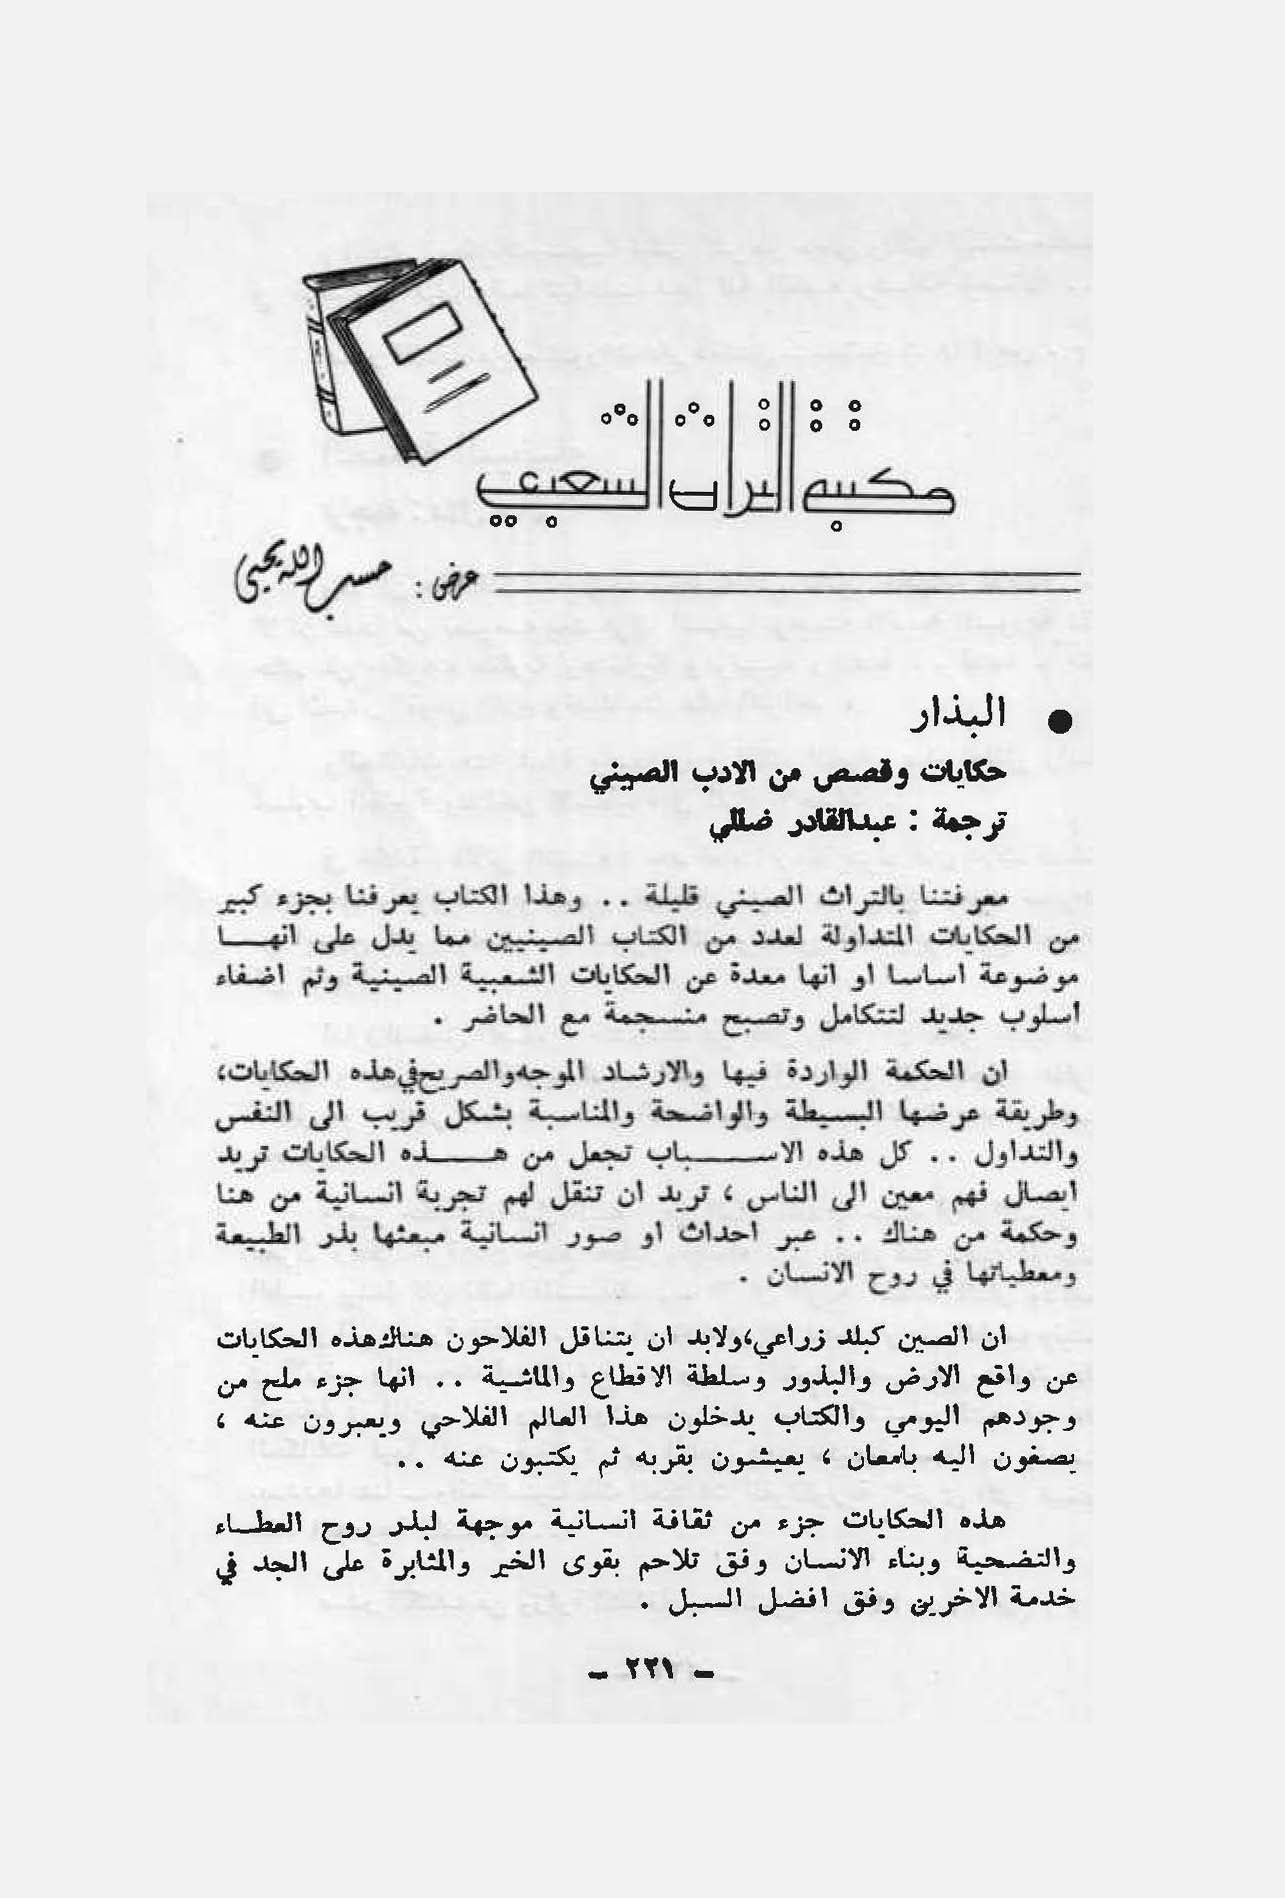 مكتبة التراث الشعبي
عرض : حسب الله يحيى
● البذار
حكايات وقصص من الادب الصيني
ترجمة : عبدالقادر ضللي
معرفتنا بالتراث الصيني قليلة .. وهذا الكتاب يعرفنا بجزء كبير
من الحكايات المتداولة لعدد من الكتاب الصينيين مما يدل على انهــا
موضوعة اساسا او انها معدة عن الحكايات الشعبية الصينية وثم اضفاء
اسلوب جديد لتتكامل وتصبح منسجمة مع الحاضر .
ان الحكمة الواردة فيها والارشاد الموجه والصريح في هذه الحكايات،
وطريقة عرضها البسيطة والواضحة والمناسبة بشكل قريب الى النفس
والتداول .. كل هذه الاســـباب تجعل من هـــذه الحكايات تريد
ايصال فهم معين الى الناس ، تريد ان تنقل لهم تجربة انسانية من هنا
وحكمة من هناك .. عبر احداث او صور انسانية مبعثها بذر الطبيعة
ومعطياتها في روح الانسان .
ان الصين كبلد زراعي،ولابد ان يتناقل الفلاحون هناك هذه الحكايات
عن واقع الارض والبذور وسلطة الاقطاع والماشية .. انها جزء ملح من
وجودهم اليومي والكتاب يدخلون هذا العالم الفلاحي ويعبرون عنه ،
يصغون اليه بامعان ، يعيشون بقربه ثم يكتبون عنه ..
هذه الحكايات جزء من ثقافة انسانية موجهة لبذر روح العطــاء
والتضحية وبناء الانسان وفق تلاحم بقوى الخير والمثابرة على الجد في
خدمة الاخرين وفق افضل السبل .
– ٢٢١ –